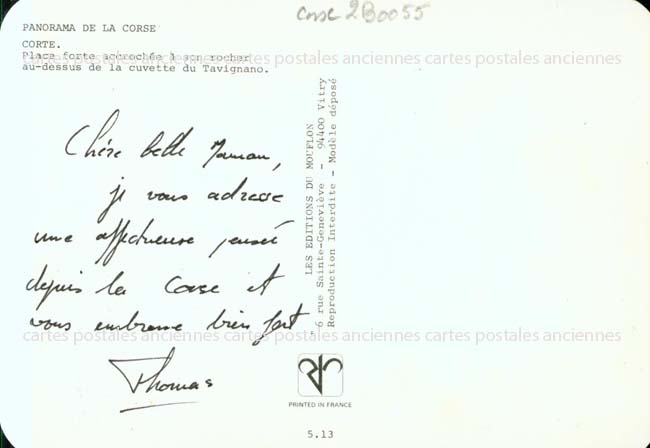 corse 2B0055
PANORAMA DE LA CORSE
CORTE.
Place forte accrochée à son rocher
au-dessus de la cuvette du Tavignano.
cartes postales anciennes cartes postales anciennes cartes postales anciennes
Chère belle Maman,
je vous adresse
une affectueuse pensée
depuis la Corse et
vous embrasse bien fort.
Thomas
LES EDITIONS DU MOUFLON
6 rue Sainte-Geneviève - 94400 Vitry
Reproduction Interdite - Modèle déposé
cartes postales anciennes cartes postales anciennes cartes postales anciennes
PRINTED IN FRANCE
5.13